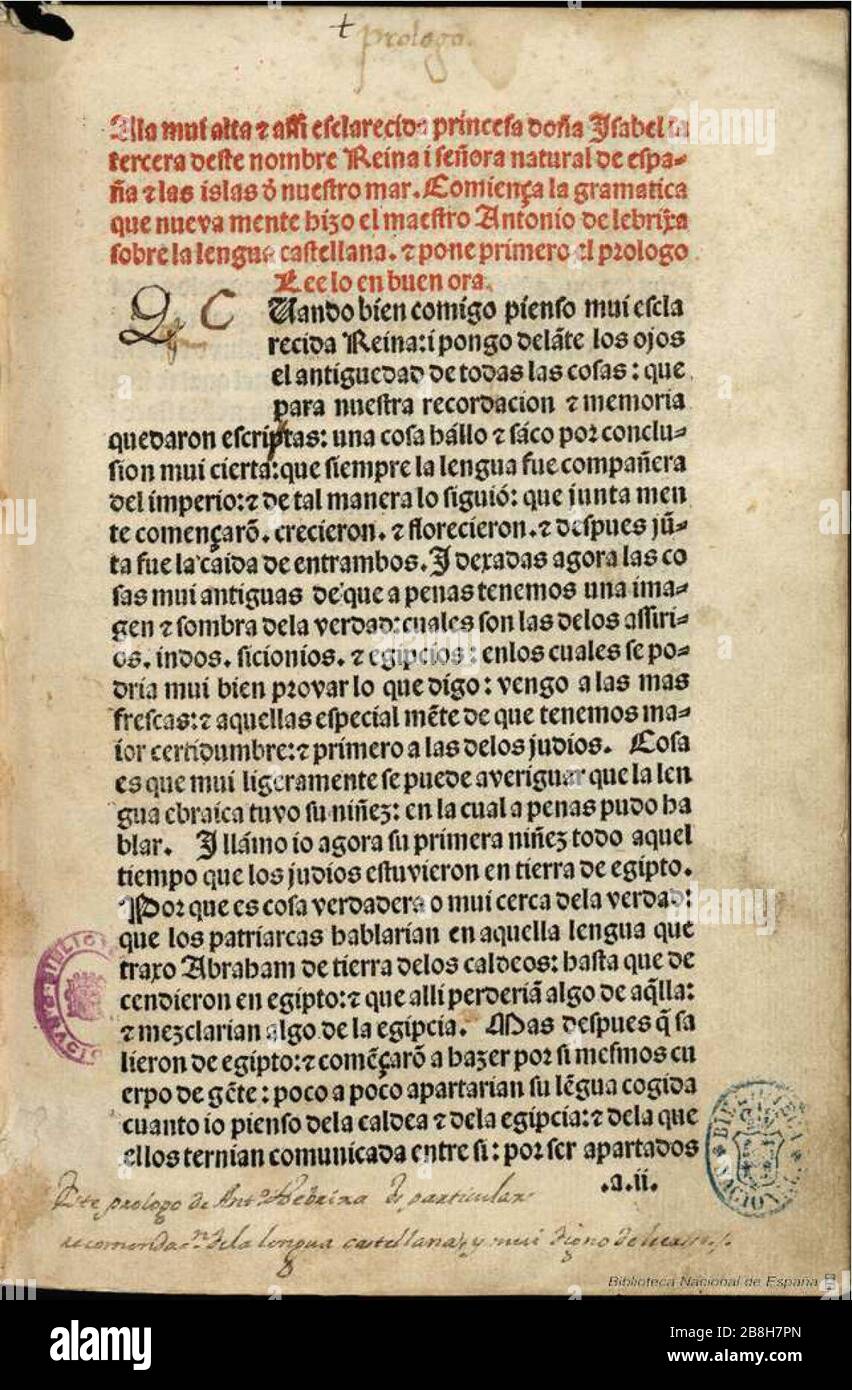 prologo.
Alla mui alta ⁊ assi esclarecida princesa doña Isabel la
tercera deste nombre Reina i señora natural de espa-
ña ⁊ las islas ð nuestro mar. Comiença la gramatica
que nueva mente hizo el maestro Antonio de lebrixa
sobre la lengua castellana. ⁊ pone primero el prologo
Lee lo en buen ora.
C
Uando bien comigo pienso mui escla
recida Reina: i pongo delãte los ojos
el antiguedad de todas las cosas: que
para nuestra recordacion ⁊ memoria
quedaron escriptas: una cosa hállo ⁊ sáco por conclu-
sion mui cierta: que siempre la lengua fue compañera
del imperio: ⁊ de tal manera lo siguió: que junta men
te començarõ. crecieron. ⁊ florecieron. ⁊ despues jũ-
ta fue la caida de entrambos. I dexadas agora las co
sas mui antiguas de que a penas tenemos una ima-
gen ⁊ sombra dela verdad: cuales son las delos assiri-
os. indos. sicionios. ⁊ egipcios: enlos cuales se po-
dria mui bien provar lo que digo: vengo a las mas
frescas: ⁊ aquellas especial mẽte de que tenemos ma-
ior certidumbre: ⁊ primero a las delos judios. Cosa
es que mui ligeramente se puede averiguar que la len
gua ebraica tuvo su niñez: en la cual a penas pudo ha
blar. I llámo io agora su primera niñez todo aquel
tiempo que los judios estuvieron en tierra de egipto.
Por que es cosa verdadera o mui cerca dela verdad:
que los patriarcas hablarian en aquella lengua que
traxo Abraham de tierra delos caldeos: hasta que de
cendieron en egipto: ⁊ que alli perderiã algo de aq̃lla:
⁊ mezclarian algo de la egipcia. Mas despues q̃ sa
lieron de egipto: ⁊ comẽçarõ a hazer por si mesmos cu
erpo de gẽte: poco a poco apartarian su lẽgua cogida
cuanto io pienso dela caldea ⁊ dela egipcia: ⁊ dela que
ellos ternian comunicada entre si: por ser apartados
.a.ii.
Este prologo de Antº Nebrixa es particular
recomendaºⁿ dela lengua castellana, y mui digno de
Biblioteca Nacional de España
alamy
Image ID: 2B8H7PN
www.alamy.com